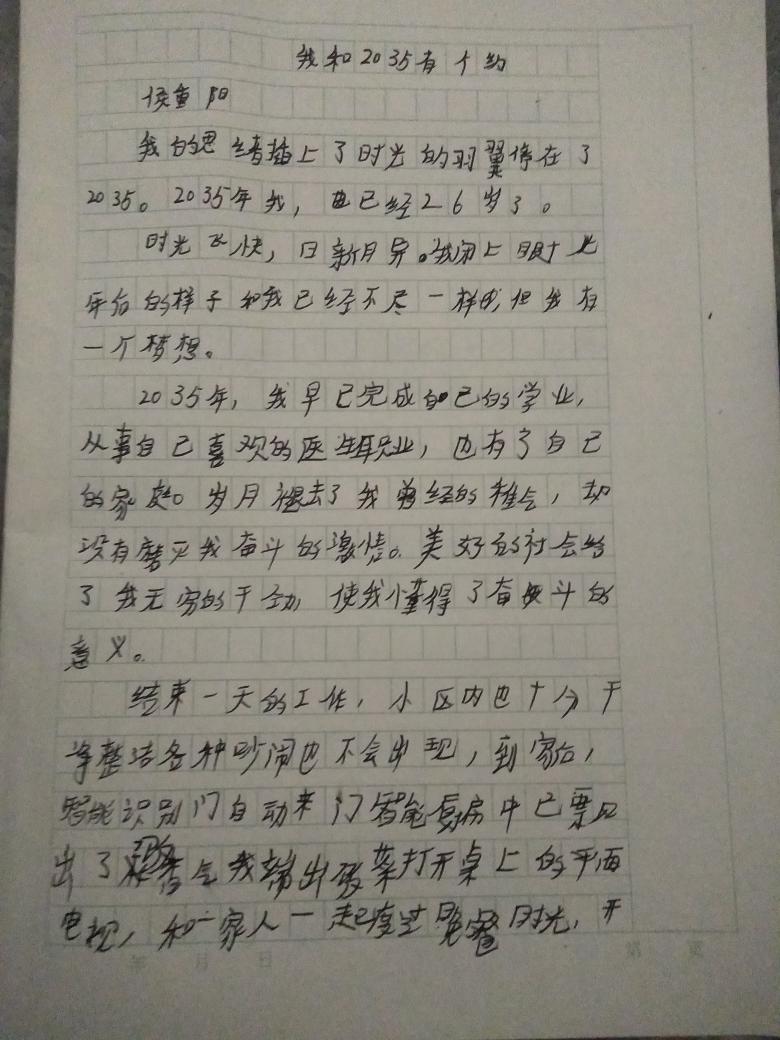 我和2035有个约
侯重阳
我的思绪插上了时光的羽翼停在了
2035。2035年我,也已经26岁了。
时光飞快,日新月异。我闭上眼十几
年后的样子和我已经不尽一样的,但我有
一个梦想。
2035年,我早已完成自己的学业,
从事自己喜欢的医生职业,也有了自己
的家庭。岁月褪去了我曾经的稚气,却
没有磨灭我奋斗的激情。美好的社会给
了我无穷的干劲,使我懂得了奋斗的
意义。
结束一天的工作,小区内也十分干
净整洁各种吵闹也不会出现,到家后,
智能识别门自动来门智能厨房中已飘
出了香气我端出饭菜打开桌上的平面
电视,和一家人一起度过晚餐时光,开
年 月 日
第 页